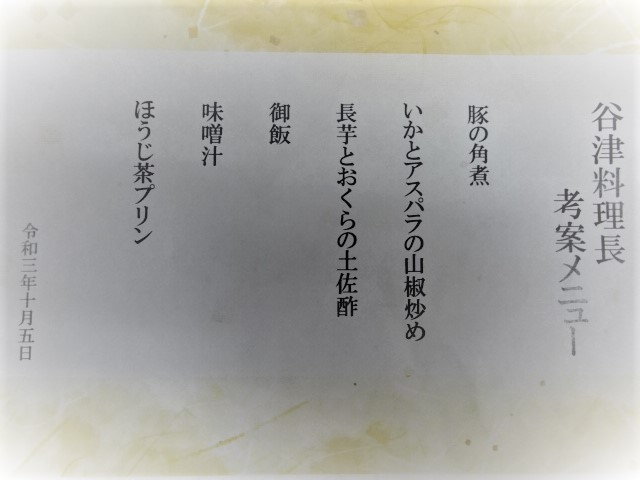 谷津料理長
考案メニュー
豚の角煮
いかとアスパラの山椒炒め
長芋とおくらの土佐酢
御飯
味噌汁
ほうじ茶プリン
令和三年十月五日